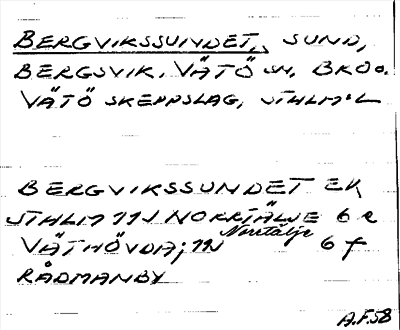 BERGVIKSSUNDET, SUND,
BERGSVIK, VÄTÖ SN, BRO O.
VÄTÖ SKEPPSLAG, STHLM:S L
BERGVIKSSUNDET EK
STHLM 11J NORRTÄLJE 6 e
VÄTHÖVDA; 11J Norrtälje 6 f
RÅDMANBY
A.F.58